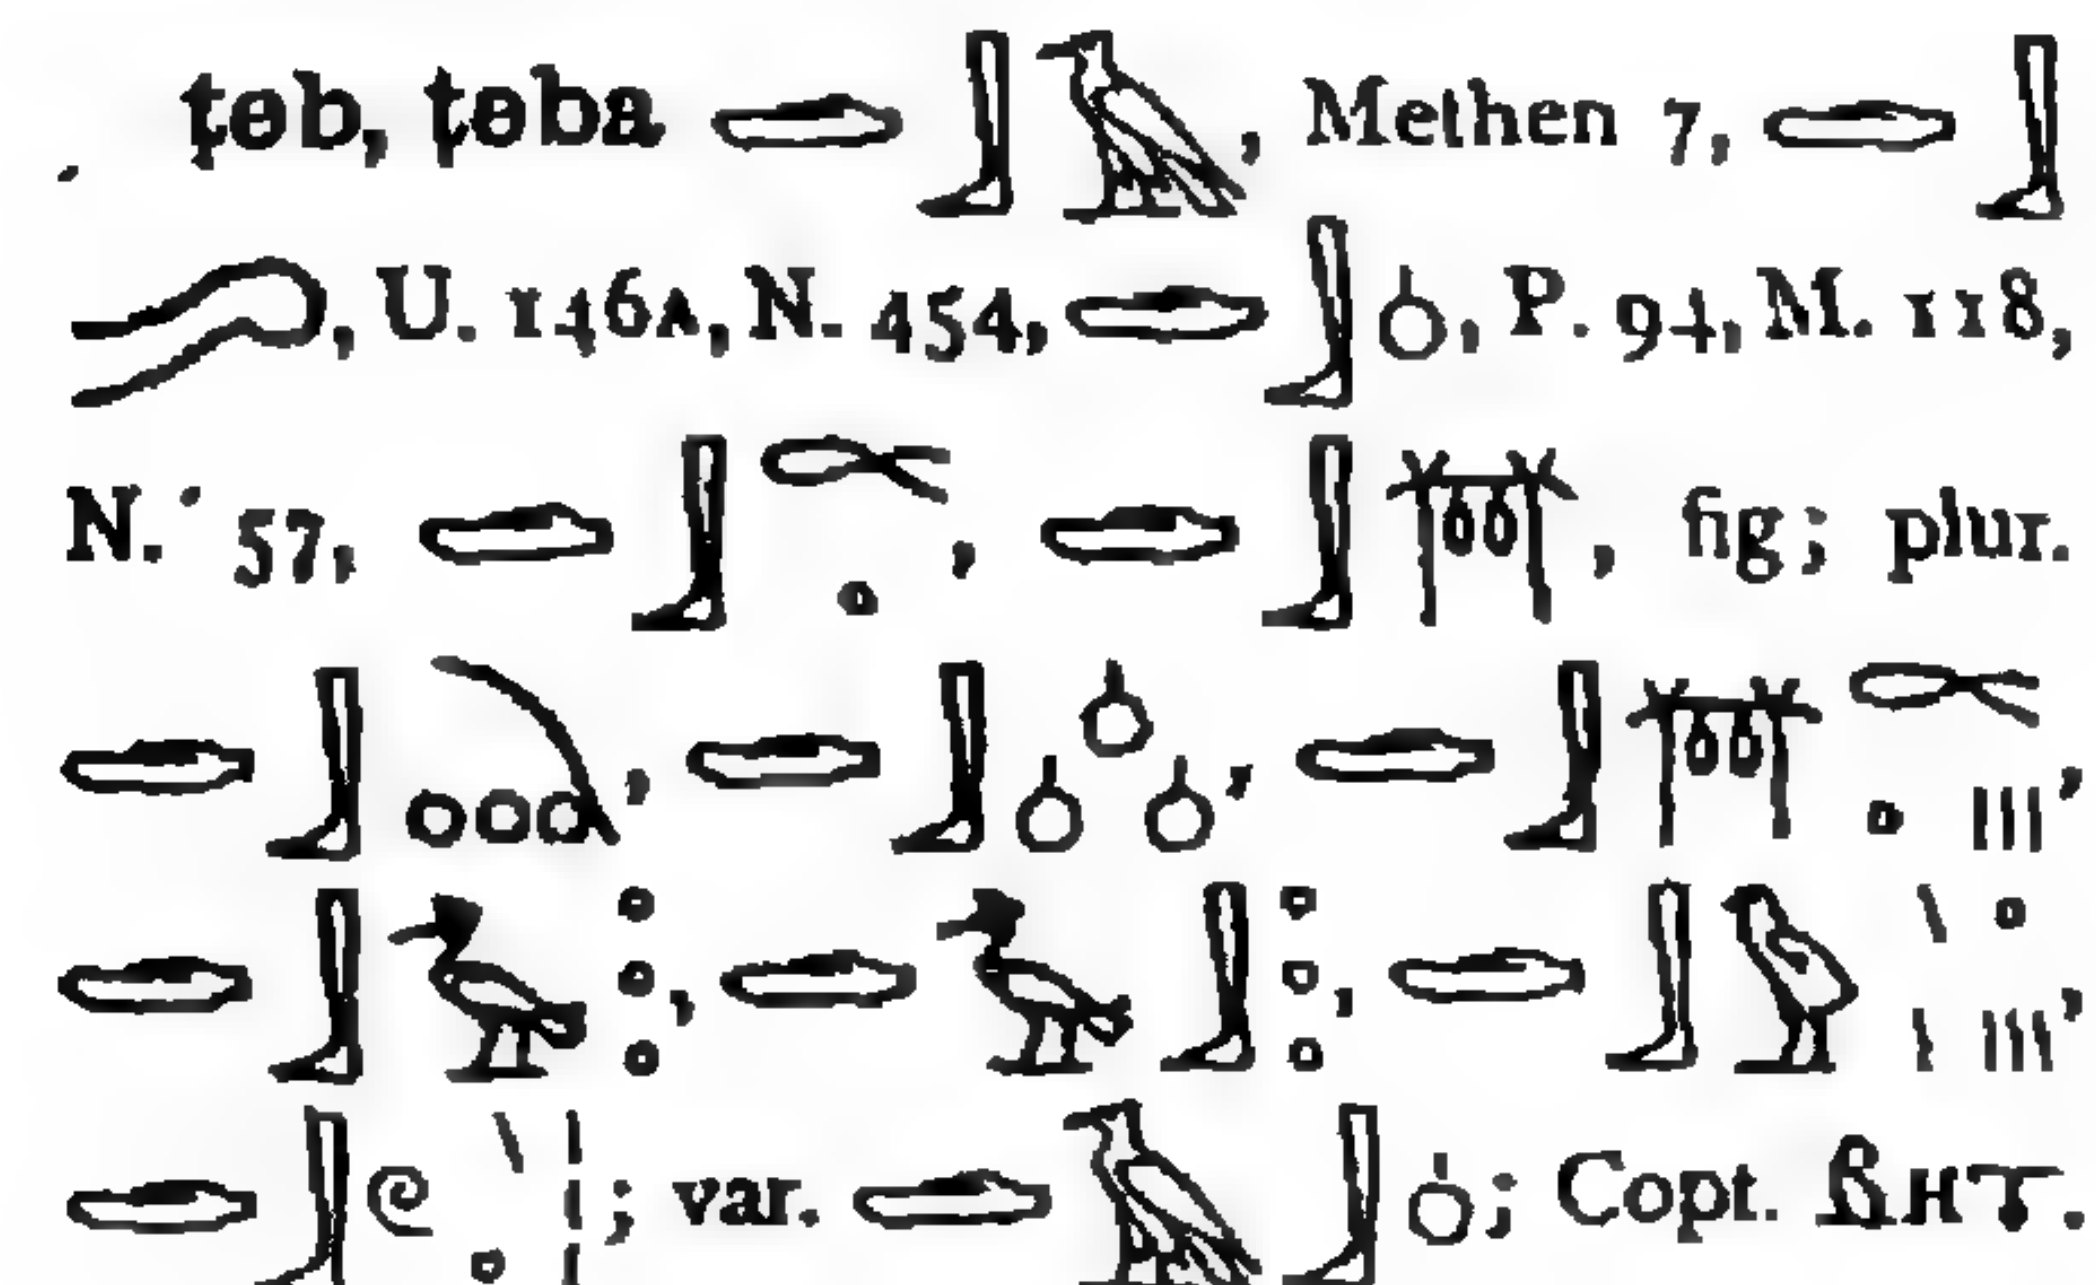 ṭeb, ṭeba 𓂧𓃀𓄿, Methen 7, 𓂧𓃀
, U. 146A, N. 454, 𓂧𓃀, P. 94, M. 118,
N. 57, 𓂧𓃀, 𓂧𓃀𓇭, fig; plur.
𓂧𓃀, 𓂧𓃀, 𓂧𓃀𓇭𓏥,
𓂧𓃀𓅙, 𓂧𓅙𓃀, 𓂧𓃀𓅱𓏥,
𓂧𓃀𓏲; var. 𓂧𓄿𓃀; Copt. ⲃⲏⲧ.